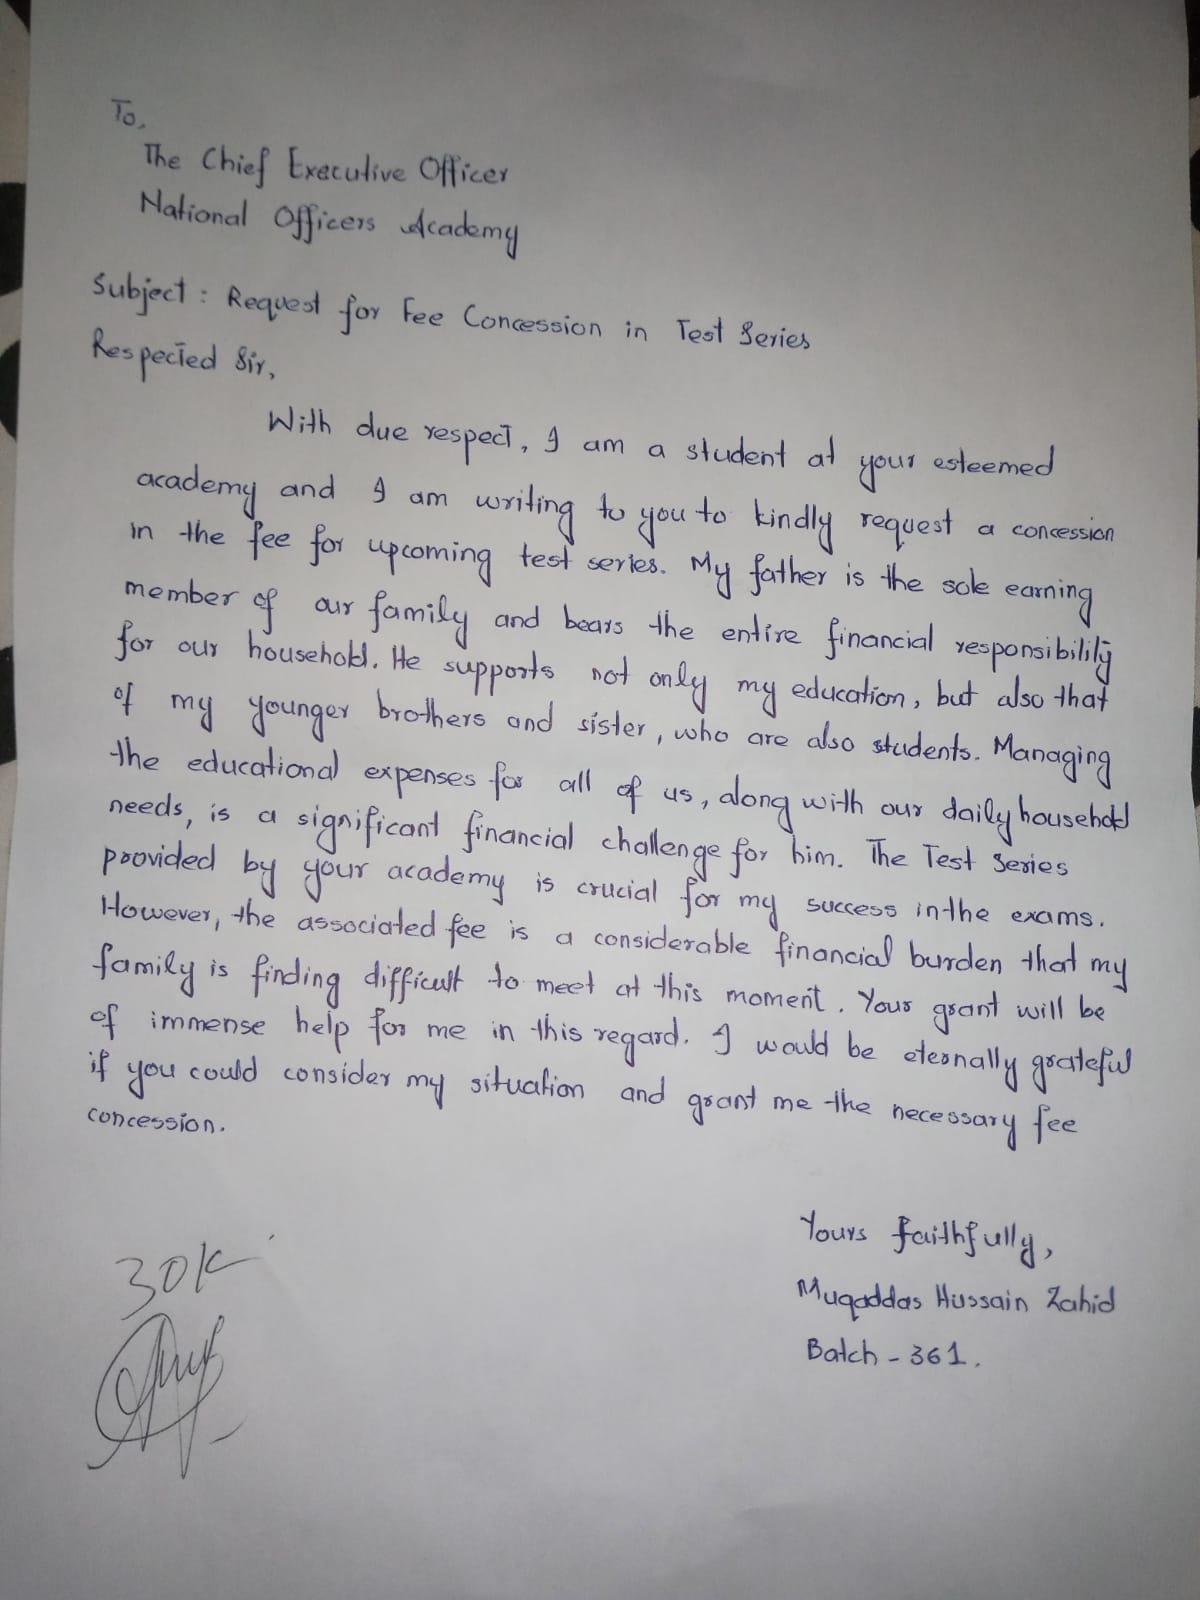 To,
The Chief Executive Officer
National Officers Academy
Subject : Request for Fee Concession in Test Series
Respected Sir,
With due respect, I am a student at your esteemed
academy and I am writing to you to kindly request a concession
in the fee for upcoming test series. My father is the sole earning
member of our family and bears the entire financial responsibility
for our household. He supports not only my education, but also that
of my younger brothers and sister, who are also students. Managing
the educational expenses for all of us, along with our daily household
needs, is a significant financial challenge for him. The Test Series
provided by your academy is crucial for my success in the exams.
However, the associated fee is a considerable financial burden that my
family is finding difficult to meet at this moment. Your grant will be
of immense help for me in this regard. I would be eternally grateful
if you could consider my situation and grant me the necessary fee
concession.
Yours faithfully,
Muqaddas Hussain Zahid
Batch - 361.
30K